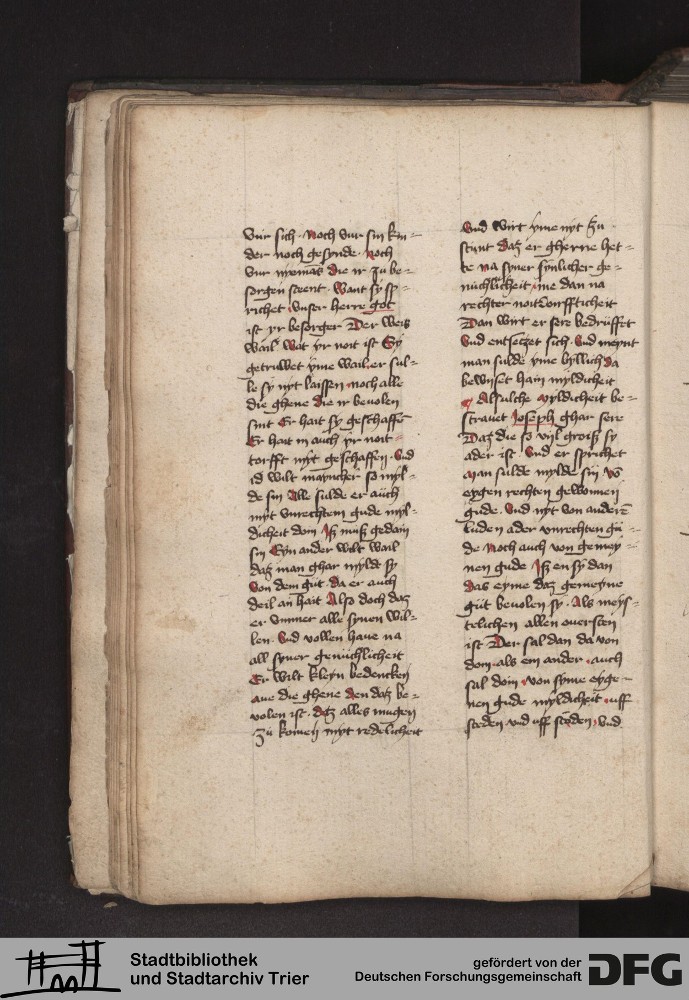 vur sich · Noch vur sin kin-
der noch gesynde · Noch
vur nyemās die ir zu be-
sorgen steent · Want sy sp-
richet · vnser herre got
ist yr besorger Der weis
wail wat yr noit ist Sy
getruwet yme wail · er sul-
le sy nyt laissen · noch alle
die ghene die ir beuolen
sint Er hait sy geschaffē
Er hait in auch yr noit-
torfft myt geschaffen · Vnd
id wilt mayncher so myl-
de sin Alle sulde er auch
myt vnrechtem gude myl-
dicheit doin Jß muß gedain
sin Eyn ander wilt wail
daz man ghar myldt sy
Von dem gut · da er auch
deil an hait Also doch daz
er ymmer alle synen wil-
len · Vnd vollen haue na
all syner genuchlicheit
Er wilt kleyn bedencken
aue die ghene den daz be-
uolen ist · daz alles mugen
zu komen myt redelicheit
Vnd wirt yme nyt zu
stunt daz er gherne het-
te na syner synlicher ge-
nuchlicheit · yme dan na
rechter noitdorfftigheit
Dan wirt er sere bedrufft
Vnd entsetzet sich · Vnd meynt
man sulde yme byllich da
bewyset hain myldicheit
Alsulche myldicheit be-
strauet Joseph ghar sere
Daz die so vyl groiß sy
ader ist · Vnd er sprichet
Man sulde mylde sin vō
eygen rechten gewonnen
gude · Vnd nyt von anderē
luden ader vnrechten gu-
de Noch auch von gemey-
nen gude Jß en sy dan
das eyme daz gemeyne
gut beuolen sy · Als meys-
terlichen allen ouersten
ist Der sal dan da von
doin · als ein ander · auch
sal doin · von syme eyge-
nen gude myldicheit · uff
steden vnd uff steden · Vnd
Stadtbibliothek
und Stadtarchiv Trier
gefördert von der
Deutschen Forschungsgemeinschaft
DFG